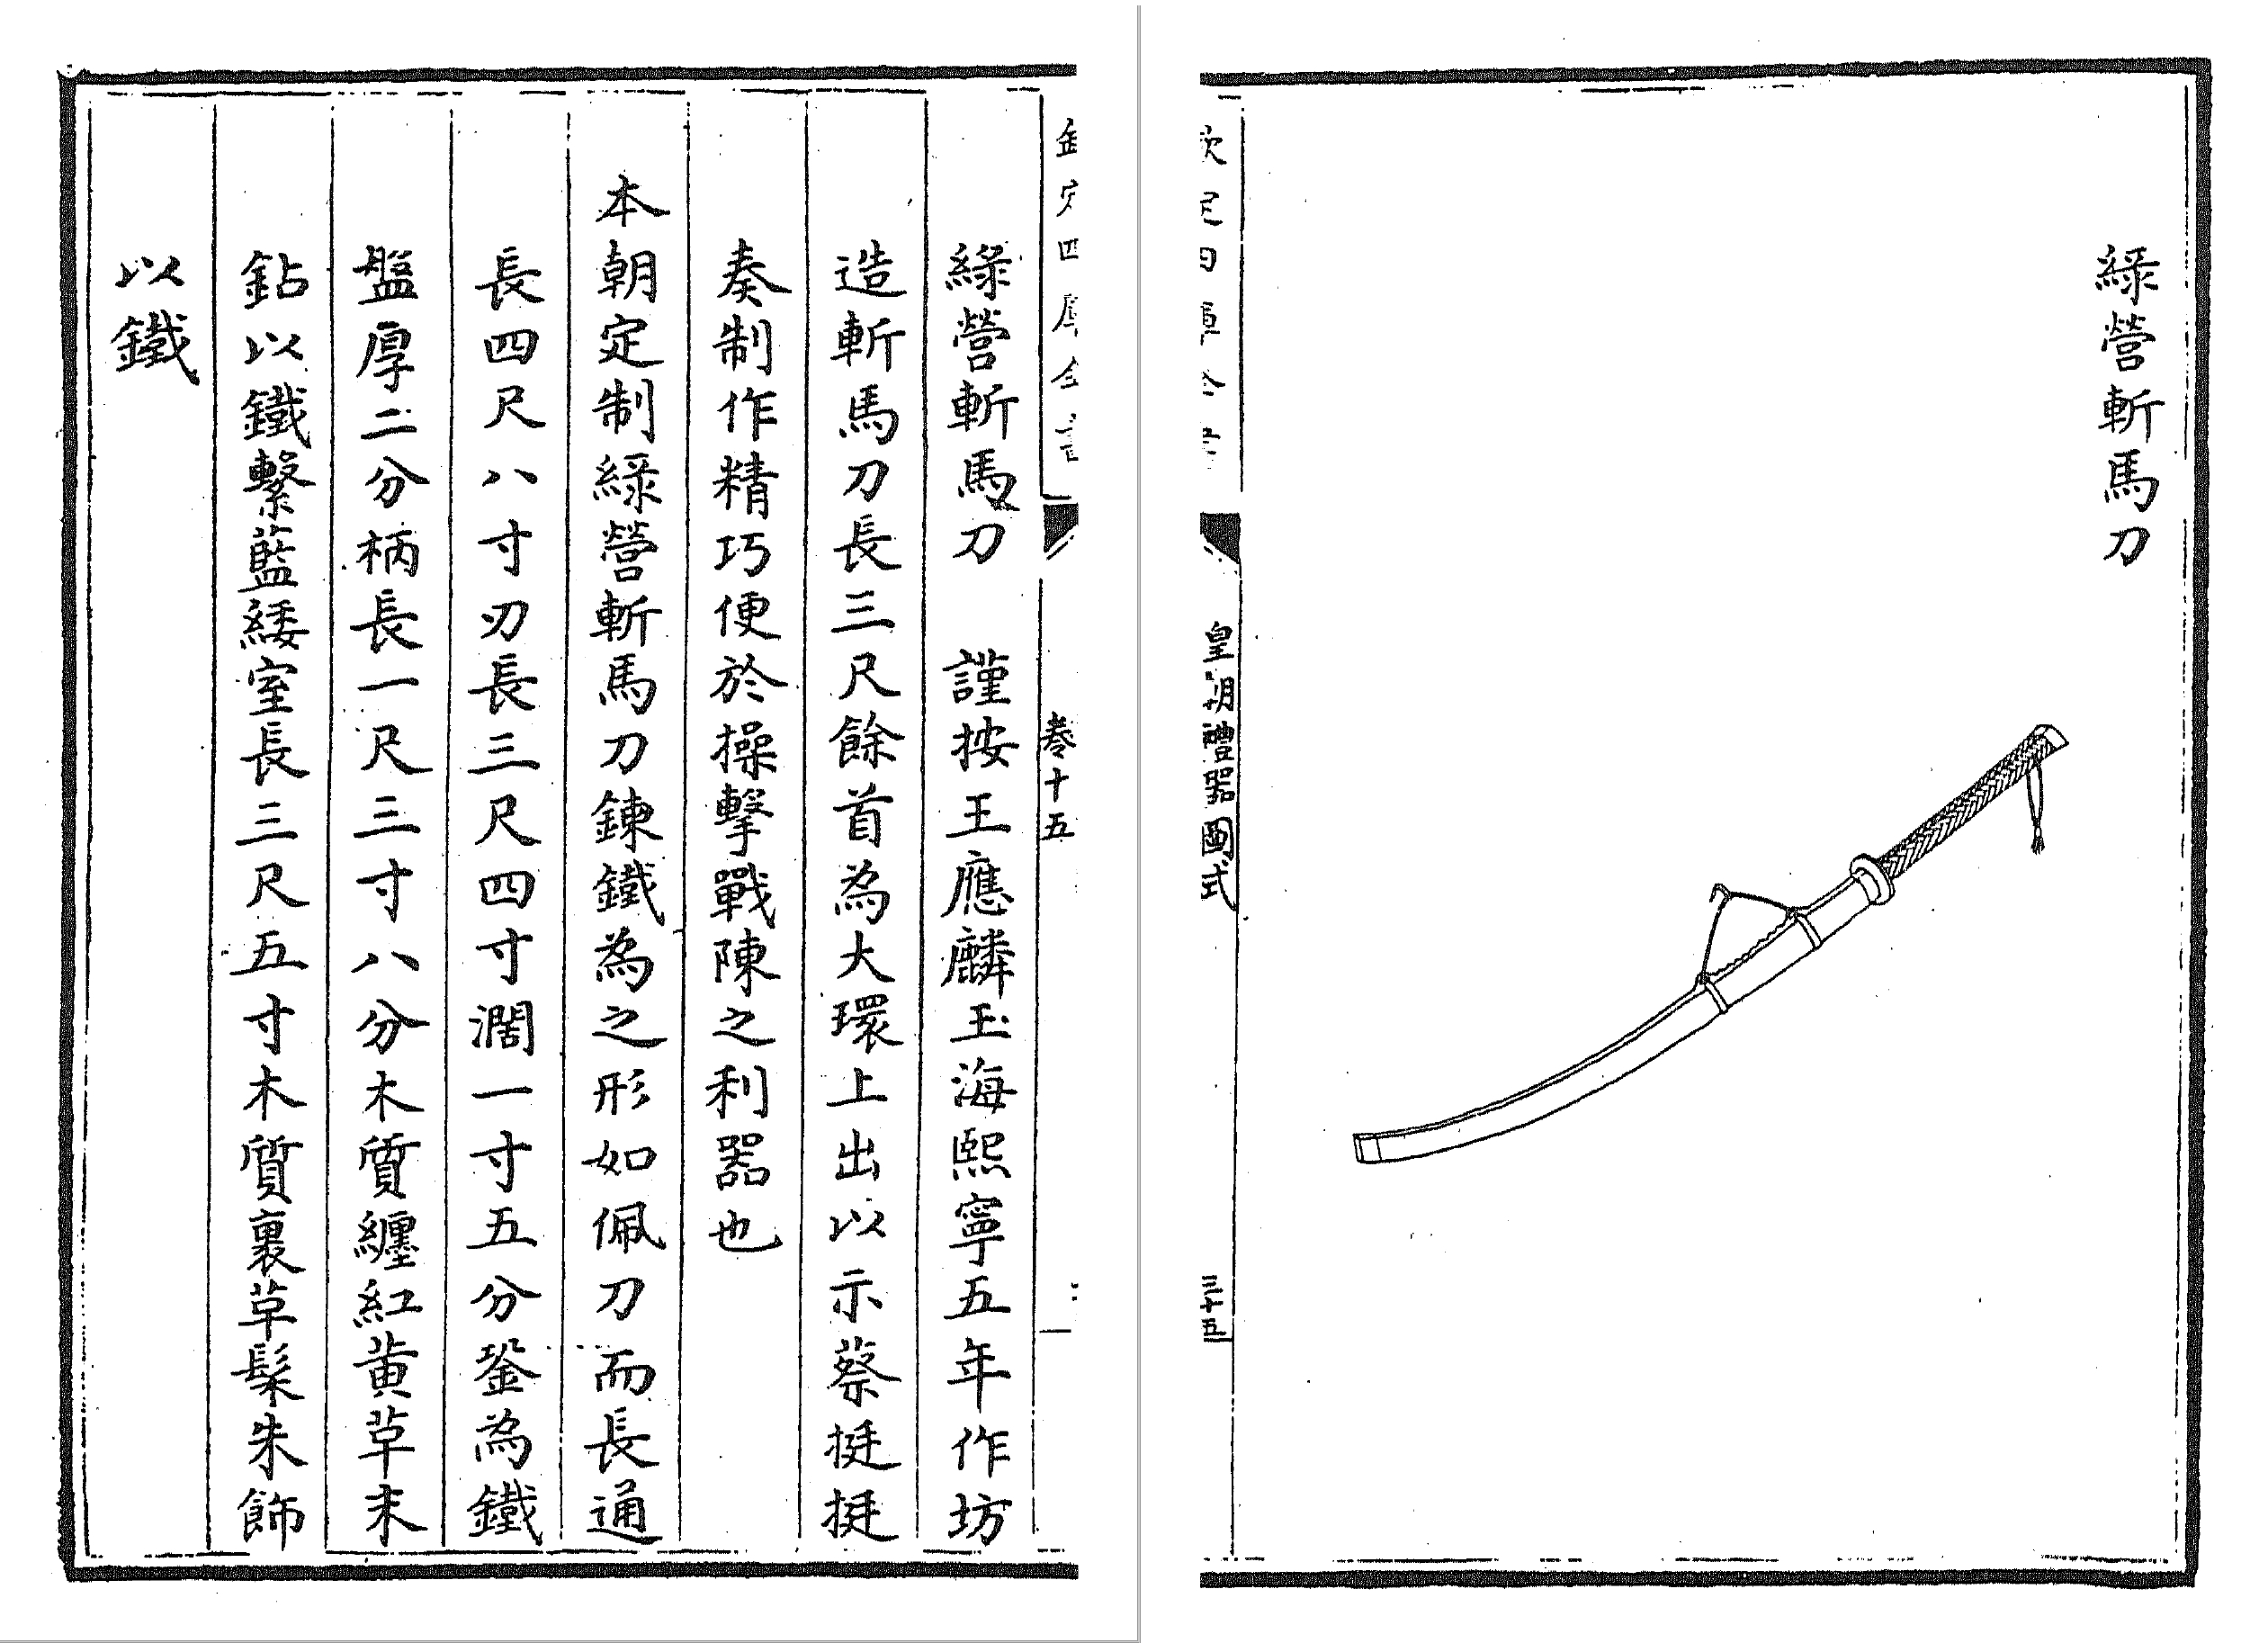 綠營斬馬刀
欽定四庫全書
皇朝禮器圖式
三十五
欽定四庫全書
卷十五
綠營斬馬刀 謹按王應麟玉海熙寧五年作坊
造斬馬刀長三尺餘首為大環上出以示蔡挺挺
奏制作精巧便於操擊戰陳之利器也
本朝定制綠營斬馬刀鍊鐵為之形如佩刀而長通
長四尺八寸刃長三尺四寸濶一寸五分銎為鐵
盤厚二分柄長一尺三寸八分木質纏紅黃草末
鉆以鐵繫藍緌室長三尺五寸木質裹草髹朱飾
以鐵